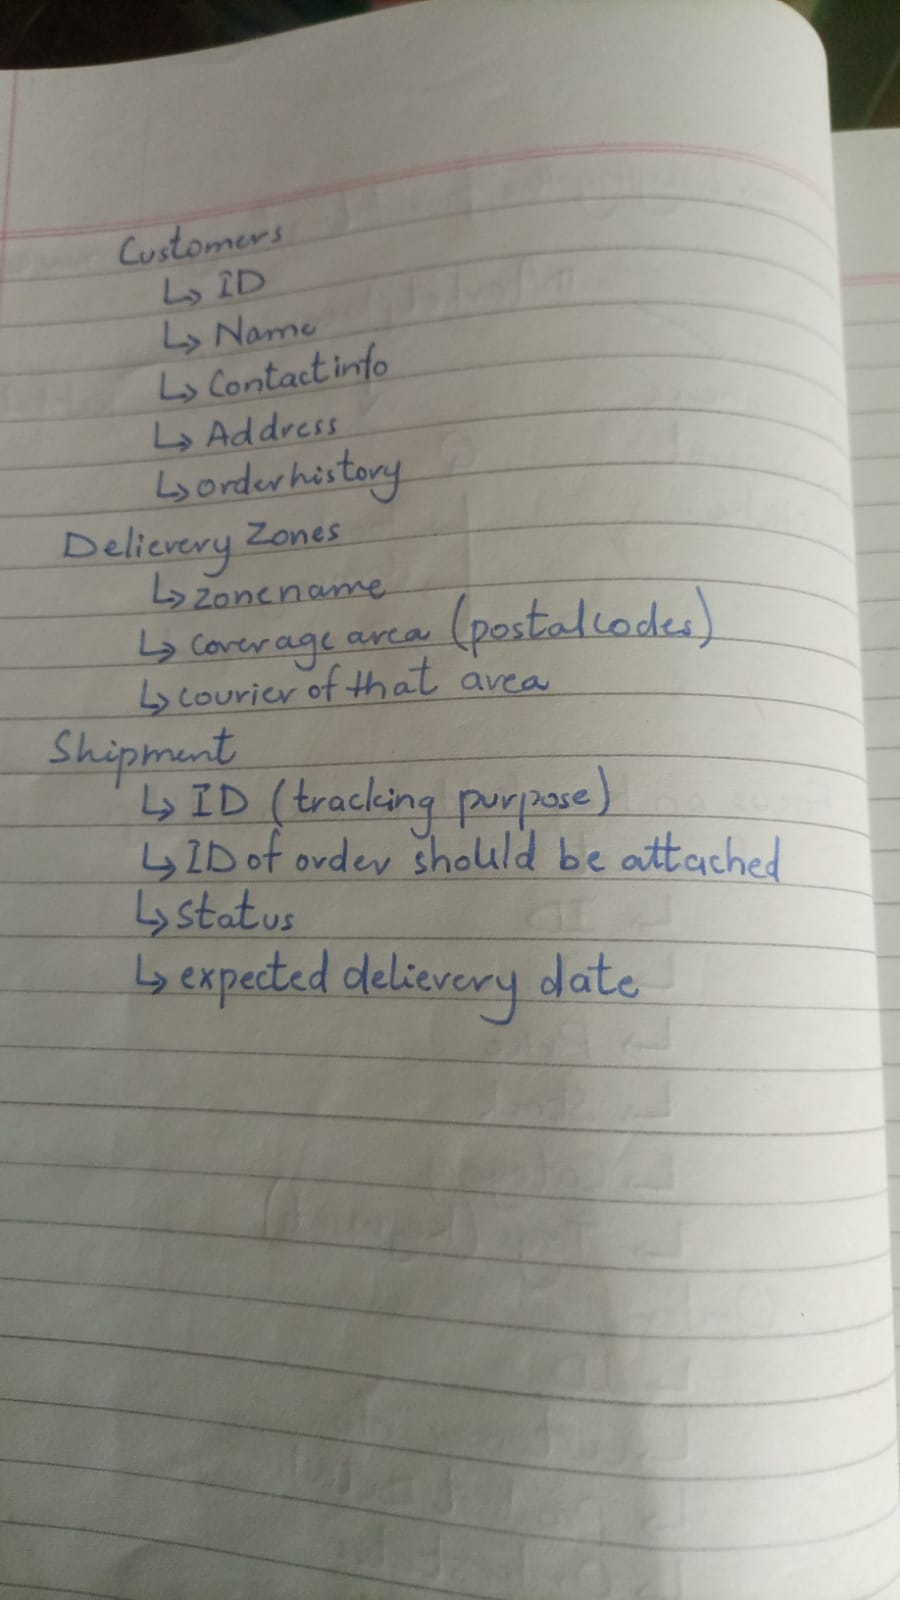 Customers
↳ ID
↳ Name
↳ Contact info
↳ Address
↳ order history
Delievery Zones
↳ zone name
↳ coverage area (postal codes)
↳ courier of that area
Shipment
↳ ID (tracking purpose)
↳ ID of order should be attached
↳ status
↳ expected delievery date